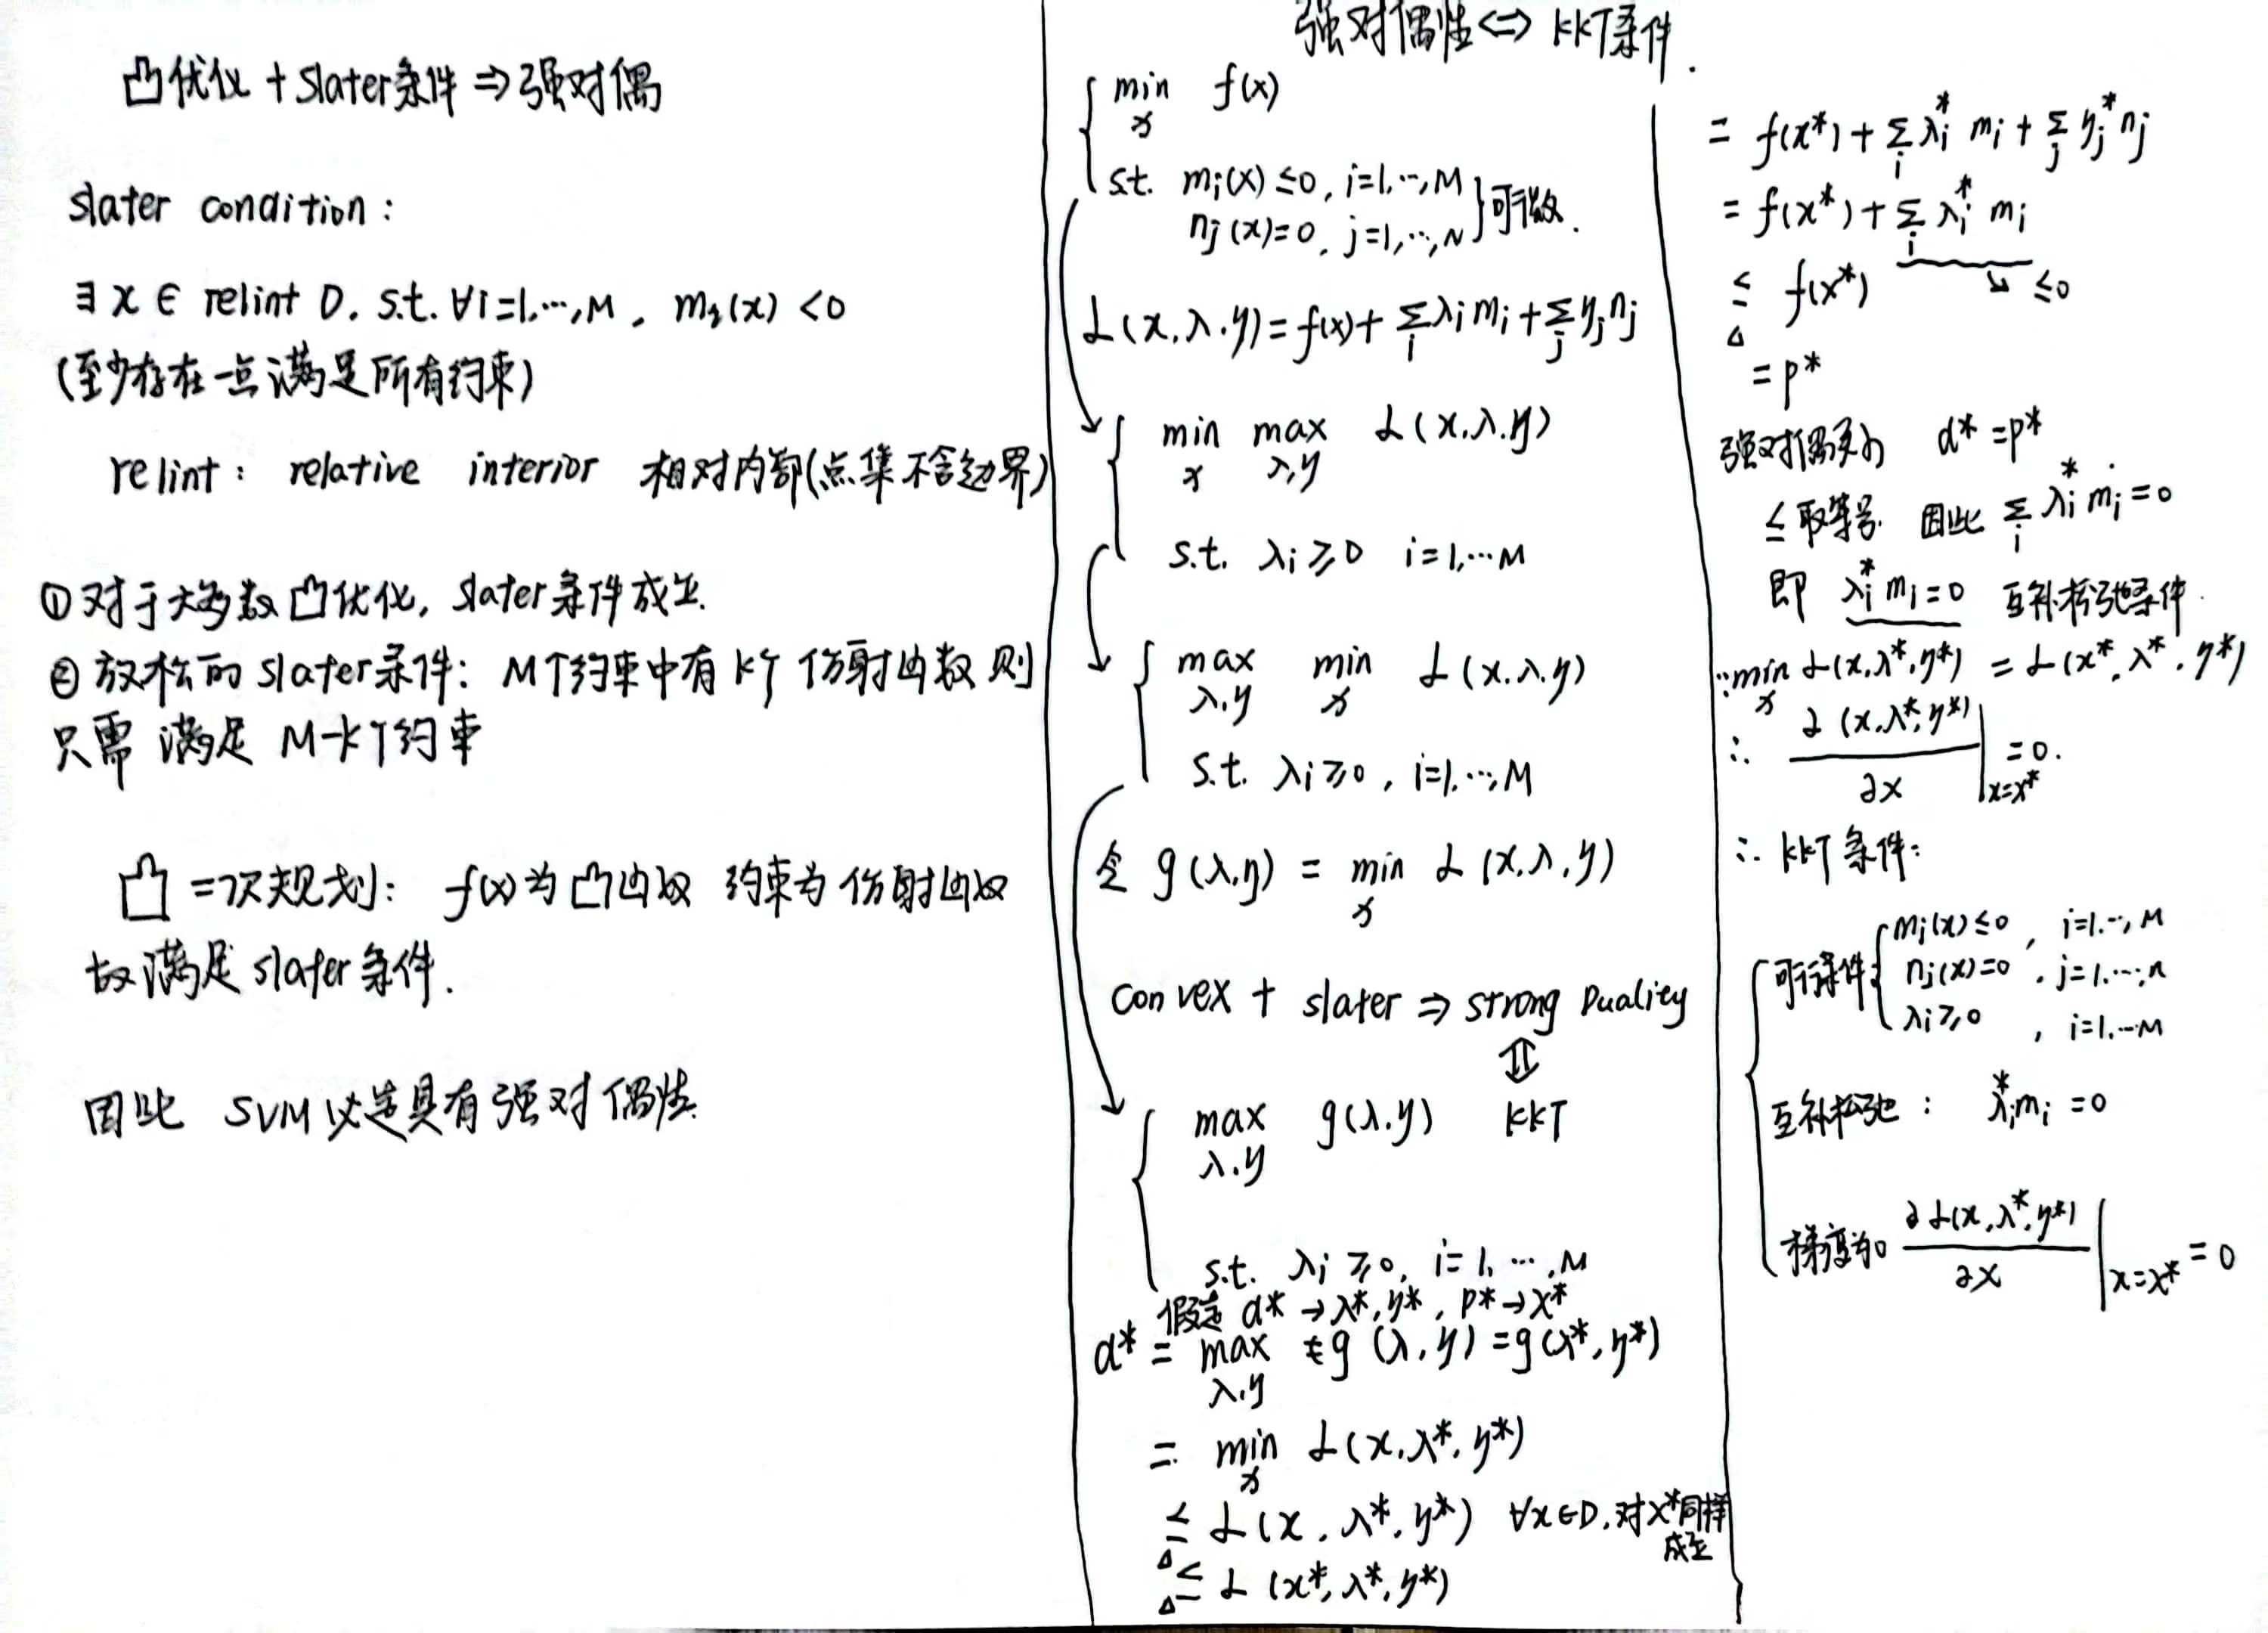 凸优化 + Slater条件 ⇒ 强对偶
slater condition :
∃ x ∈ relint D. s.t. ∀i=1,…,M , mᵢ(x) <0
(至少存在一点满足所有约束)
relint : relative interior 相对内部(点集不含边界)
① 对于大多数凸优化, slater条件成立.
② 放松的slater条件: M个约束中有k个仿射函数 则
只需 满足 M-k个约束
凸二次规划: f(x)为凸函数 约束为仿射函数
故满足slater条件.
因此 SVM 必定具有强对偶性.
强对偶性 <=> KKT条件.
min f(x)
x
s.t. mᵢ(x) ≤0, i=1,…,M
nⱼ(x)=0, j=1,…,N } 可微.
L(x,λ,η)=f(x)+ Σᵢ λᵢmᵢ + Σⱼ ηⱼnⱼ
min max L(x,λ,η)
x λ,η
s.t. λᵢ ≥0 i=1,…M
max min L(x,λ,η)
λ,η x
s.t. λᵢ≥0, i=1,…,M
令 g(λ,η) = min L(x,λ,η)
x
convex + slater ⇒ strong Duality
⇕
max g(λ,η) KKT
λ,η
s.t. λᵢ ≥0, i=1, …,M
假定 d* → λ*,η*, p* → x*
d* = max g(λ,η) = g(λ*,η*)
λ,η
= min L(x,λ*,η*)
x
≤ L(x,λ*,η*) ∀x∈D,对x*同样
成立
≤ L(x*,λ*,η*)
= f(x*) + Σᵢ λᵢ* mᵢ + Σⱼ ηⱼ* nⱼ
= f(x*) + Σᵢ λᵢ* mᵢ
≤ f(x*) ↘ ≤0
= p*
强对偶 d* = p*
≤取等号. 因此 Σᵢ λᵢ* mᵢ =0
即 λᵢ* mᵢ=0 互补松弛条件.
∵ min L(x,λ*,η*) = L(x*,λ*,η*)
x
∴ ∂(x,λ*,η*)/∂x |x=x* =0.
∴ KKT条件:
可行条件: mᵢ(x)≤0 , i=1,…,M
nⱼ(x)=0 , j=1,…,n
λᵢ≥0 , i=1,…M
互补松弛 : λᵢ*mᵢ =0
梯度为0 ∂L(x,λ*,η*)/∂x |x=x* = 0